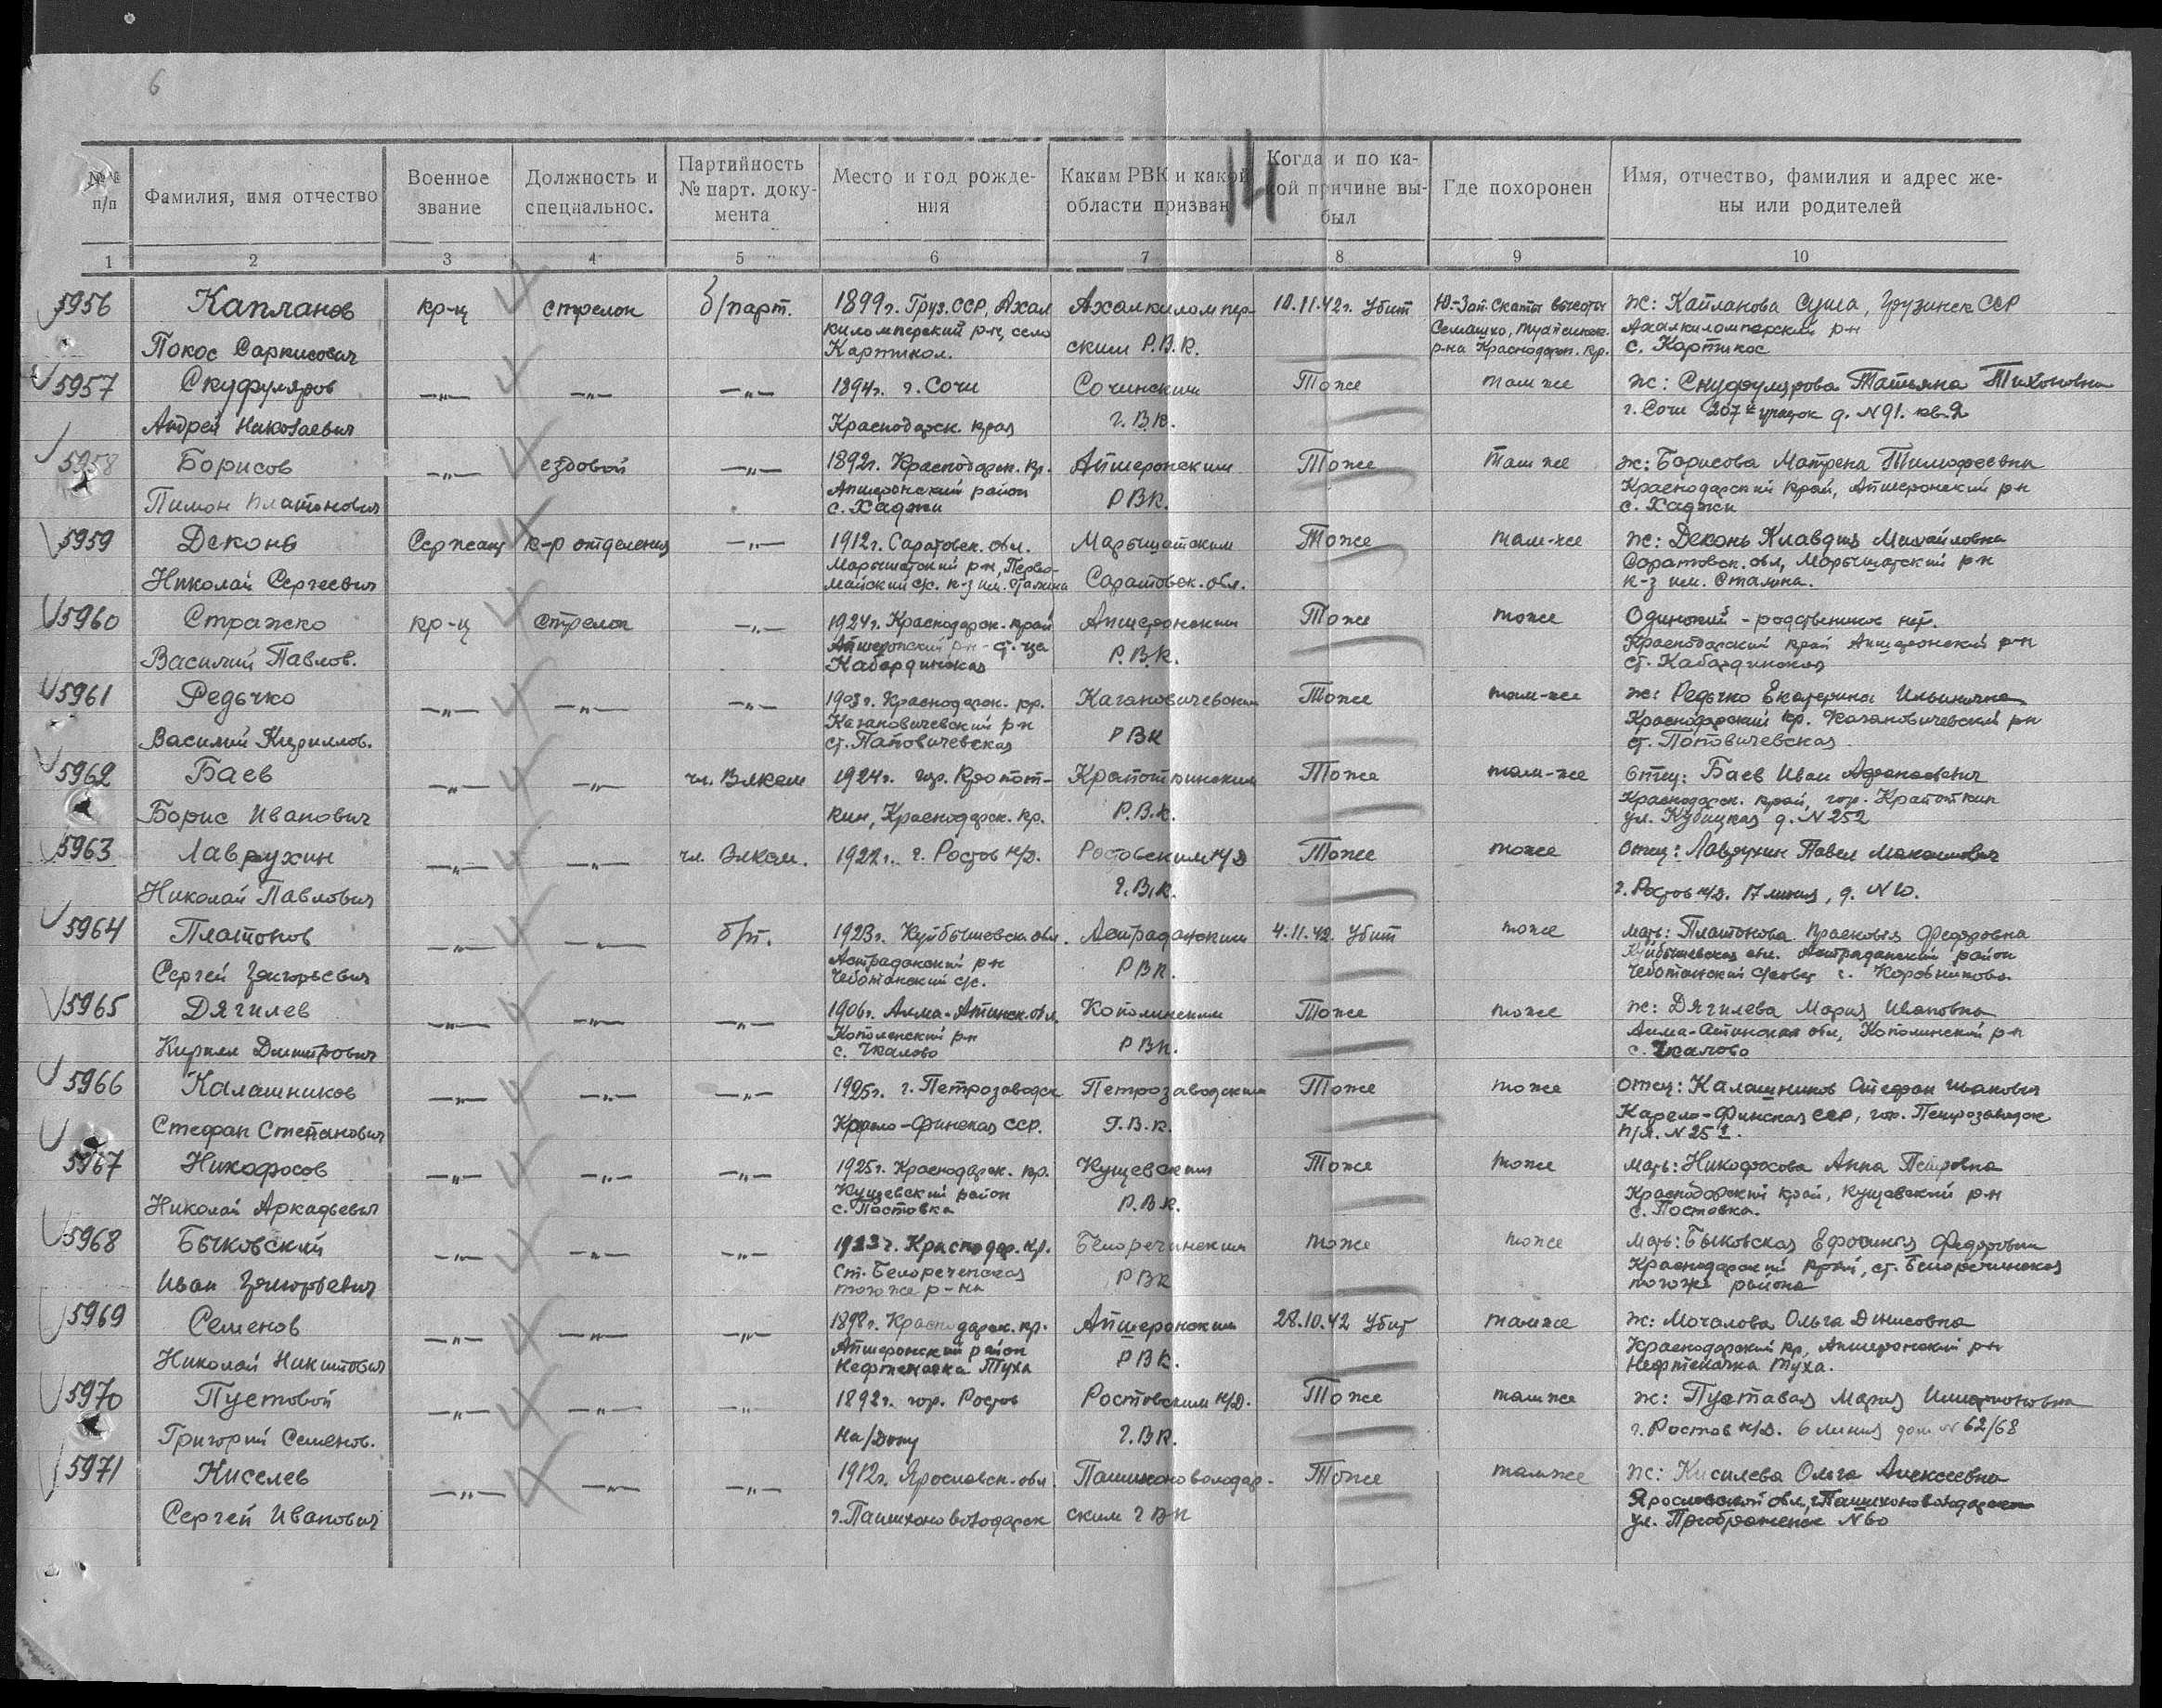 6
14
№№ п/п
Фамилия, имя отчество
Военное звание
Должность и специальнос.
Партийность № парт. доку-мента
Место и год рожде-ния
Каким РВК и какой области призван
Когда и по ка-кой причине вы-был
Где похоронен
Имя, отчество, фамилия и адрес же-ны или родителей
1 2 3 4 5 6 7 8 9 10
5956 Капланов кр-ц стрелок б/парт. 1899г. Груз.ССР, Ахал Ахалкиломпер- 10.11.42г. Убит Ю-Зап. скаты высоты ж: Капланова Суша, Грузинск ССР
киломперский р-н, село Семашко, Туапсинск. Ахалкиломперский р-н
Покос Саркисович Картикол. ским Р.В.К. р-на Краснодарск. кр. с. Картикос
5957 Скуфуляров —„— —„— —„— 1894г. г. Сочи Сочинским Тоже там же ж: Скуфулярова Татьяна Тихоновна
Андрей Николаевич Краснодарск. края г.В.К. г. Сочи 207й участок д. N 91. кв. 2
5958 Борисов —„— ездовой —„— 1892г. Краснодарск. кр. Апшеронским Тоже там же ж: Борисова Матрена Тимофеевна
Апшеронский район Краснодарский край, Апшеронский р-н
Пимон Платонович с. Хаджи РВК. с. Хаджи
5959 Деконь Сержант к-р отделения —„— 1912г. Саратовск. обл. Марьишатским Тоже там-же ж: Деконь Клавдия Михайловна
Марьишатский р-н, Перво- Саратовск. обл, Марьишатский р-н
Николай Сергеевич майский с/с. к-з им. Сталина Саратовск. обл. к-з им. Сталина.
5960 Стражко кр-ц Стрелок —„— 1924г. Краснодарск. край Апшеронским Тоже тоже Одинокий - родственников нет.
Апшеронский р-н - ст. ца Краснодарский край Апшеронский р-н
Василий Павлов. Кабардинская Р.В.К. ст. Кабардинская
5961 Редычко —„— —„— —„— 1903г. Краснодарск. кр. Кагановичевским Тоже там-же ж: Редычко Екатерина Ильинична
Кагановичевский р-н Краснодарский кр. Кагановичевский р-н
Василий Кириллов. ст. Поповичевская РВК ст. Поповичевская
5962 Баев —„— —„— чл. Влксм 1924г. гор. Кропот- Кропоткинским Тоже там-же Отец: Баев Иван Афанасьевич
Краснодарск. край, гор. Кропоткин
Борис Иванович кин, Краснодарск. кр. Р.В.К. ул. Кубицкая д. N 252
5963 Лаврухин —„— —„— чл. Влксм. 1922г. г. Ростов н/Д. Ростовским н/Д Тоже тоже Отец: Лаврухин Павел
Николай Павлович г.В.К. г. Ростов н/Д. 17 линия, д. N 10.
5964 Платонов —„— —„— б/п. 1923г. Куйбышевск. обл. Астраданским 4.11.42. Убит тоже мать: Платонова Прасковья Федоровна
Астраданский р-н Куйбышевская обл. Астраданский район
Сергей Григорьевич Чеботанский с/с. РВК. Чеботанский с/совет с. Коровниково.
5965 Дягилев —„— —„— —„— 1906г. Алма-Атинск. обл. Кополинским Тоже тоже ж: Дягилева Мария Ивановна
Кополенский р-н Алма-Атинская обл, Кополинский р-н
Кирилл Дмитрович с. Чкалово РВК. с. Чкалово
5966 Калашников —„— —„— —„— 1925г. г. Петрозаводск Петрозаводским Тоже тоже отец: Калашников Стефан Иванович
Карело-Финская ССР, гор. Петрозаводск
Стефан Степанович Карело-Финская ССР. Г.В.К. п/я. N 25
5967 Никофосов —„— —„— —„— 1925г. Краснодарск. кр. Кущевским Тоже тоже мать: Никофосова Анна Петровна
Кущевский район Краснодарский край, Кущевский р-н
Николай Аркадьевич с. Постовка Р.В.К. с. Постовка.
5968 Бычковский —„— —„— —„— 1923г. Краснодар. кр. Белоречинским тоже тоже мать: Быковская Ефосинья Федоровна
ст. Белореченская Краснодарский край, ст. Белоречинская
Иван Григорьевич того же р-на РВК того же района
5969 Семенов —„— —„— —„— 1898г. Краснодарск. кр. Апшеронским 28.10.42 Убит там же ж: Мочалова Ольга Денисовна
Апшеронский район Краснодарский кр, Апшеронский р-н
Николай Никитович Нефтекачка Туха РВК. Нефтекачка Туха.
5970 Пустовой —„— —„— —„— 1892г. гор. Ростов Ростовским н/Д. Тоже там же ж: Пуставая Мария
Григорий Семенов. на/Дону г.ВК. г. Ростов н/Д. 6 линия дом N 62/68
5971 Киселев —„— —„— —„— 1912г. Ярославск. обл. Пошихоноволодар- Тоже там же ж: Кисилева Ольга Алексеевна
Ярославской обл, г. Пошихоноволодарск
Сергей Иванович г. Пошихоноволодарск ским г ВК ул. Преображенск N 60